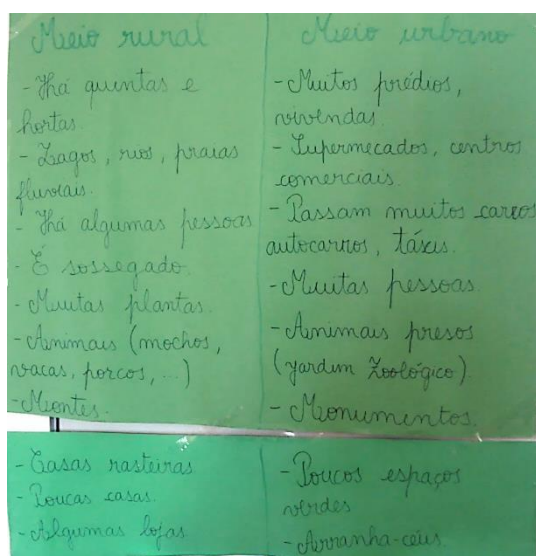 Meio rural
- Há quintas e
hortas
- Lagos, rios, praias
fluviais.
- Há algumas pessoas
- É sossegado.
- Muitas plantas.
- Animais (mochos,
vacas, porcos, ...)
- Montes.
- Casas rasteiras
- Poucas casas.
- Algumas lojas.
Meio urbano
- Muitos prédios,
vivendas.
- Supermecados, centros
comerciais.
- Passam muitos carros
autocarros, táxis.
- Muitas pessoas.
- Animais presos
(yardim Zoológico).
- Monumentos.
- Poucos espaços
verdes
- Arranha-céus.